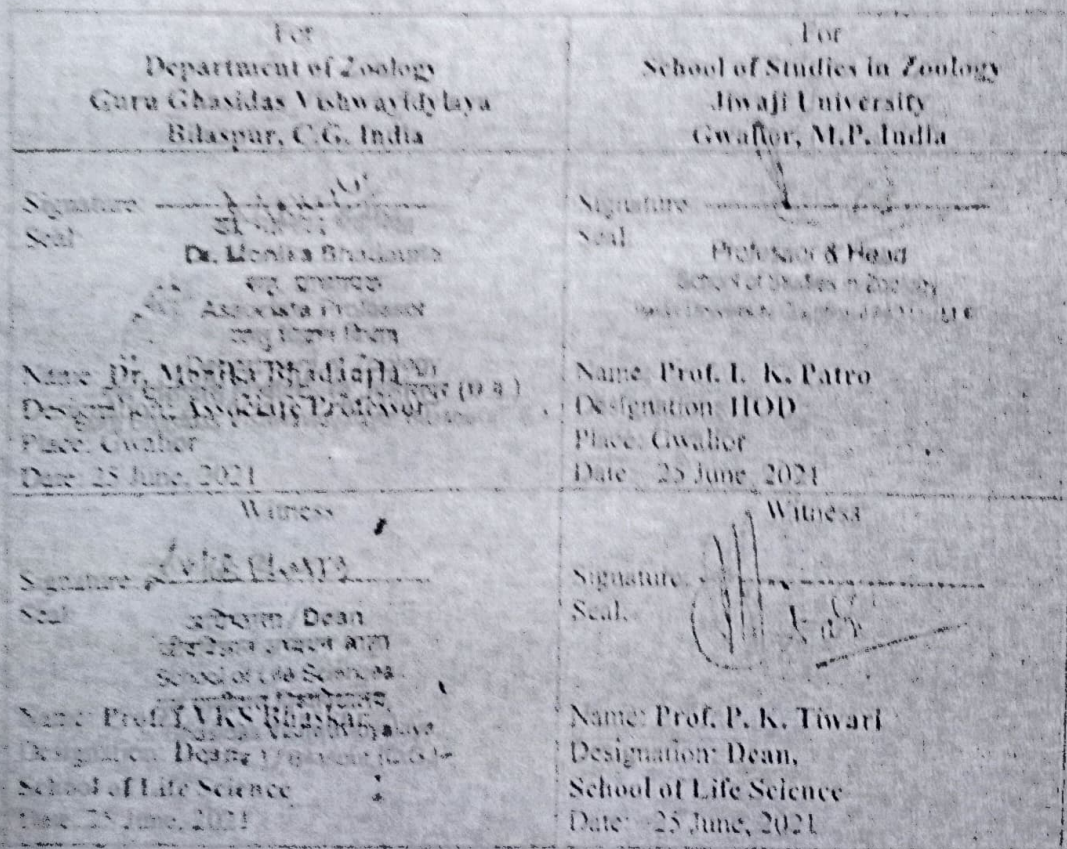 For
Department of Zoology
Guru Ghasidas Vishwavidylaya
Bilaspur, C.G. India
Signature:
Seal:
Dr. Monika Bhadauria
सह प्राध्यापक
Associate Professor
Name: Dr. Monika Bhadauria
Designation: Associate Professor
Place: Gwalior
Date: 25 June, 2021
Witness
Signature:
Seal:
अधिष्ठाता / Dean
School of Life Sciences
Name: Prof. LVKS Bhaskar
Designation: Dean,
School of Life Science
Date: 25 June, 2021
For
School of Studies in Zoology
Jiwaji University
Gwalior, M.P. India
Signature:
Seal:
Professor & Head
School of Studies in Zoology
Name: Prof. I. K. Patro
Designation: HOD
Place: Gwalior
Date: 25 June, 2021
Witness
Signature:
Seal:
Name: Prof. P. K. Tiwari
Designation: Dean,
School of Life Science
Date: 25 June, 2021